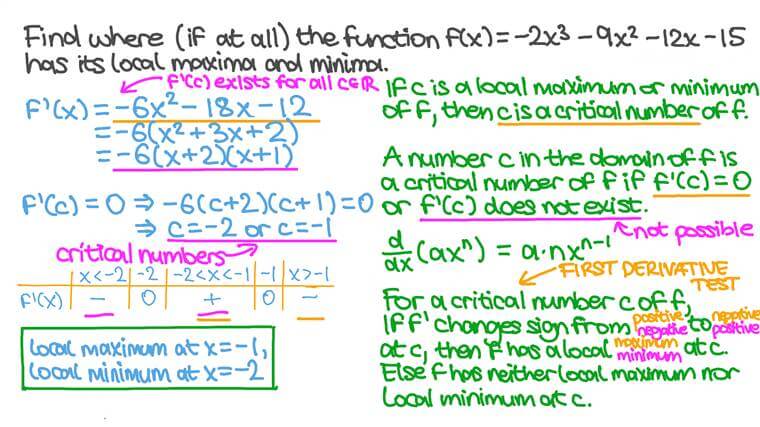 Find where (if at all) the function f(x) = -2x³ - 9x² - 12x - 15
has its local maxima and minima.
f'(c) exists for all c∈ℝ
f'(x) = -6x² - 18x - 12
= -6(x² + 3x + 2)
= -6(x+2)(x+1)
f'(c) = 0 ⇒ -6(c+2)(c+1) = 0
⇒ c = -2 or c = -1
critical numbers
x<-2 | -2 | -2<x<-1 | -1 | x>-1
f'(x) | - | 0 | + | 0 | -
local maximum at x=-1,
local minimum at x=-2
If c is a local maximum or minimum
of f, then c is a critical number of f.
A number c in the domain of f is
a critical number of f if f'(c) = 0
or f'(c) does not exist.
not possible
d/dx (axⁿ) = a·nxⁿ⁻¹
FIRST DERIVATIVE
TEST
For a critical number c of f,
positive negative
If f' changes sign from negative to positive
maximum
at c, then f has a local minimum at c.
Else f has neither local maximum nor
local minimum at c.